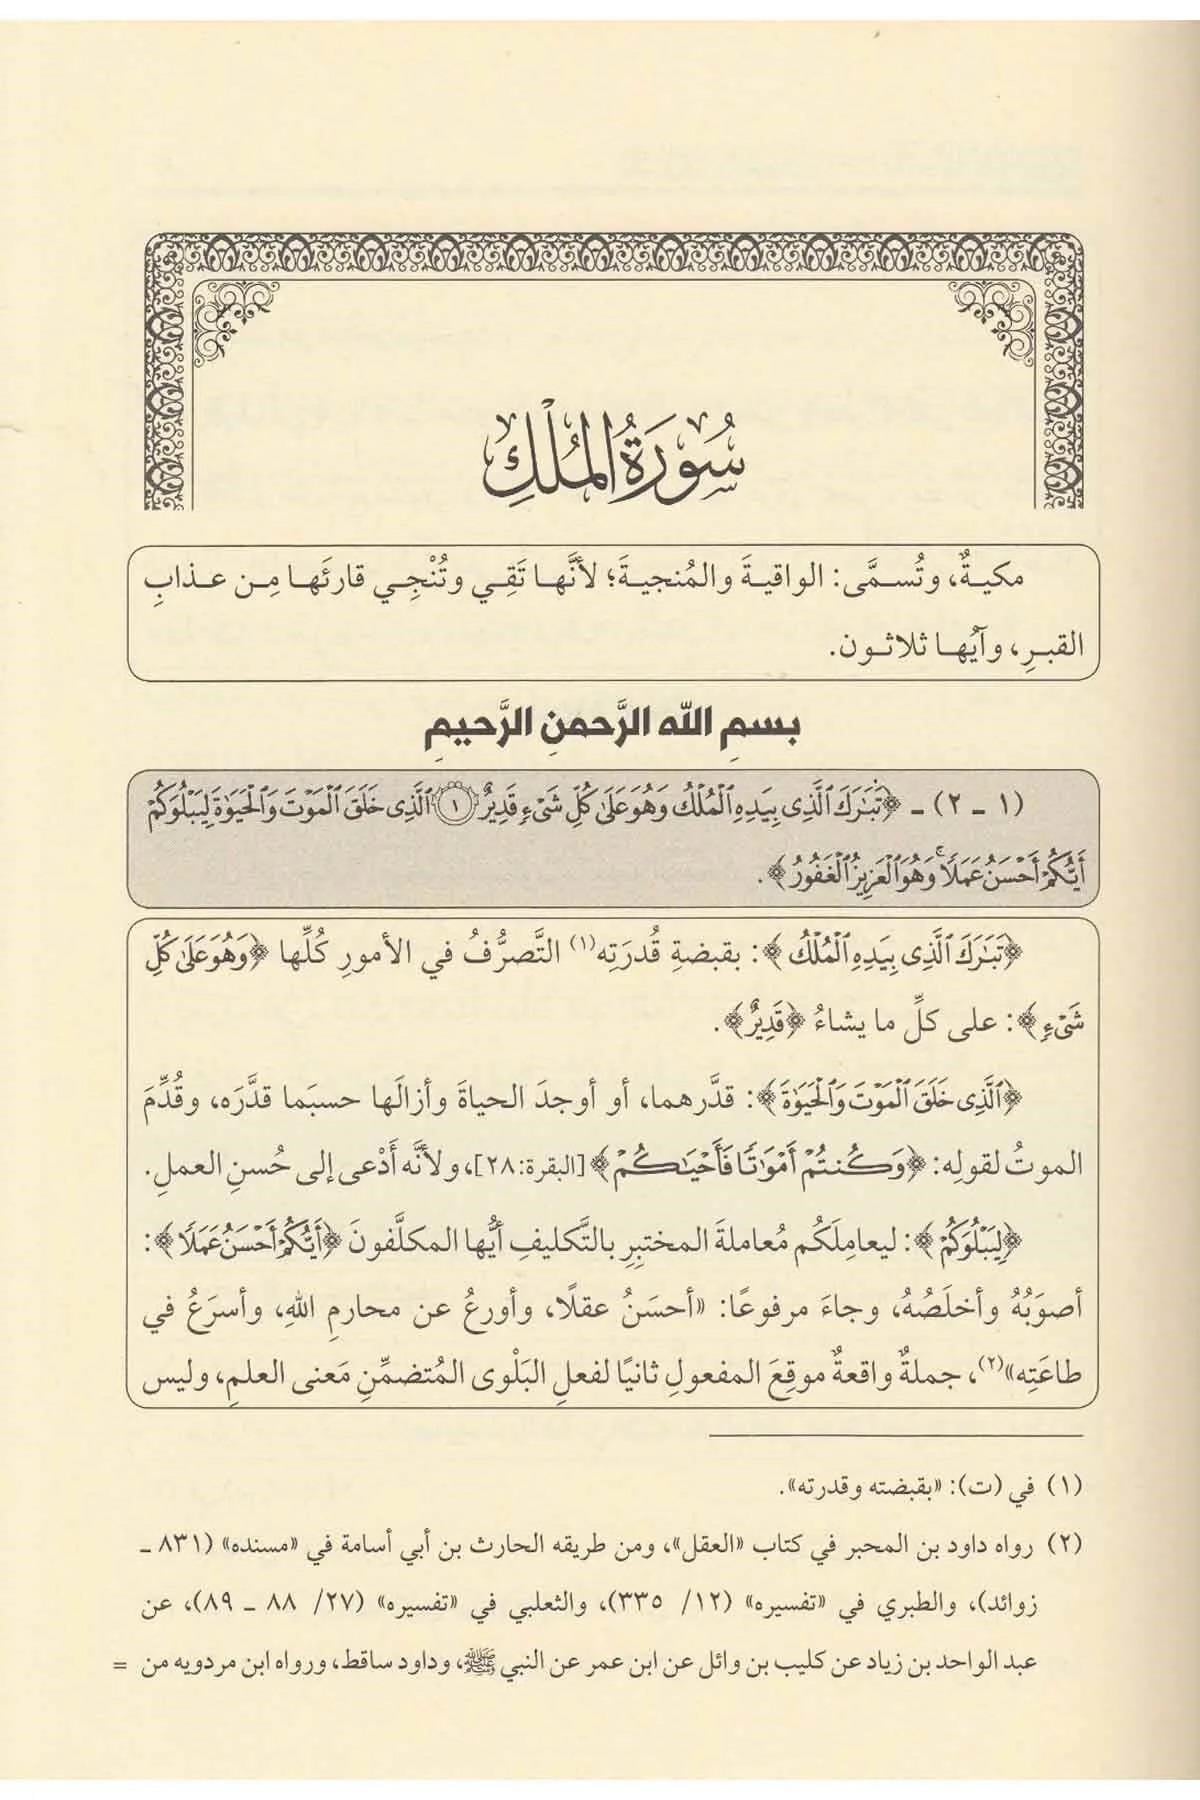 سُورَةُ المُلْكِ
مكيةٌ، وتُسمَّى: الواقيةَ والمُنجيةَ؛ لأنَّها تَقِي وتُنْجِي قارئَها مِن عذابِ
القبرِ، وآيُها ثلاثون.
بسمِ الله الرَّحمنِ الرَّحيمِ
(١ - ٢) - ﴿تَبَٰرَكَ ٱلَّذِى بِيَدِهِ ٱلْمُلْكُ وَهُوَ عَلَىٰ كُلِّ شَىْءٍ قَدِيرٌ ۝١ ٱلَّذِى خَلَقَ ٱلْمَوْتَ وَٱلْحَيَوٰةَ لِيَبْلُوَكُمْ
أَيُّكُمْ أَحْسَنُ عَمَلًا ۚ وَهُوَ ٱلْعَزِيزُ ٱلْغَفُورُ﴾.
﴿تَبَٰرَكَ ٱلَّذِى بِيَدِهِ ٱلْمُلْكُ﴾: بقبضةِ قُدرَتِه(١) التَّصرُّفُ في الأمورِ كُلِّها ﴿وَهُوَ عَلَىٰ كُلِّ
شَىْءٍ﴾: على كلِّ ما يشاءُ ﴿قَدِيرٌ﴾.
﴿ٱلَّذِى خَلَقَ ٱلْمَوْتَ وَٱلْحَيَوٰةَ﴾: قدَّرهما، أو أوجدَ الحياةَ وأزالَها حسبَما قدَّرَه، وقُدِّمَ
الموتُ لقولِه: ﴿وَكُنتُمْ أَمْوَٰتًا فَأَحْيَٰكُمْ﴾ [البقرة:٢٨]، ولأنَّه أَدْعى إلى حُسنِ العملِ.
﴿لِيَبْلُوَكُمْ﴾: ليعامِلَكُم مُعاملةَ المختبِرِ بالتَّكليفِ أيُّها المكلَّفونَ ﴿أَيُّكُمْ أَحْسَنُ عَمَلًا﴾:
أصوَبُهُ وأخلَصُهُ، وجاءَ مرفوعًا: «أحسَنُ عقلًا، وأورعُ عن محارمِ اللهِ، وأسرَعُ في
طاعَتِه»(٢)، جملةٌ واقعةٌ موقِعَ المفعولِ ثانيًا لفعلِ البَلْوى المُتضمِّنِ مَعنى العلمِ، وليس
(١) في (ت): «بقبضته وقدرته».
(٢) رواه داود بن المحبر في كتاب «العقل»، ومن طريقه الحارث بن أبي أسامة في «مسنده» (٨٣١ -
زوائد)، والطبري في «تفسيره» (١٢/ ٣٣٥)، والثعلبي في «تفسيره» (٢٧/ ٨٨ - ٨٩)، عن
عبد الواحد بن زياد عن كليب بن وائل عن ابن عمر عن النبي ﷺ، وداود ساقط، ورواه ابن مردويه من =